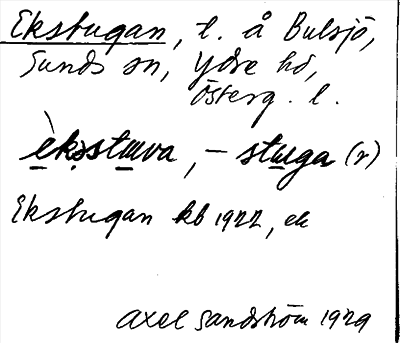 Ekstugan, t. å Bulsjö,
Sunds sn, Ydre hd,
Österg. l.
èkəstuva, – stuga (r)
Ekstugan kb 1922, ek
Axel Sandström 1929